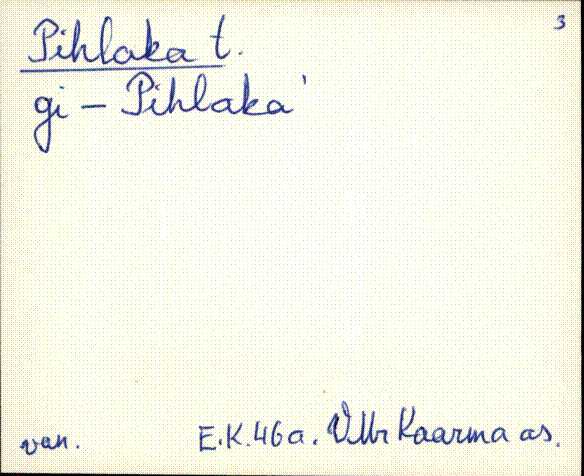 3
Pihlaka t.
gi – Pihlaka'
van. E.K. 46 a. VMr Kaarma as.